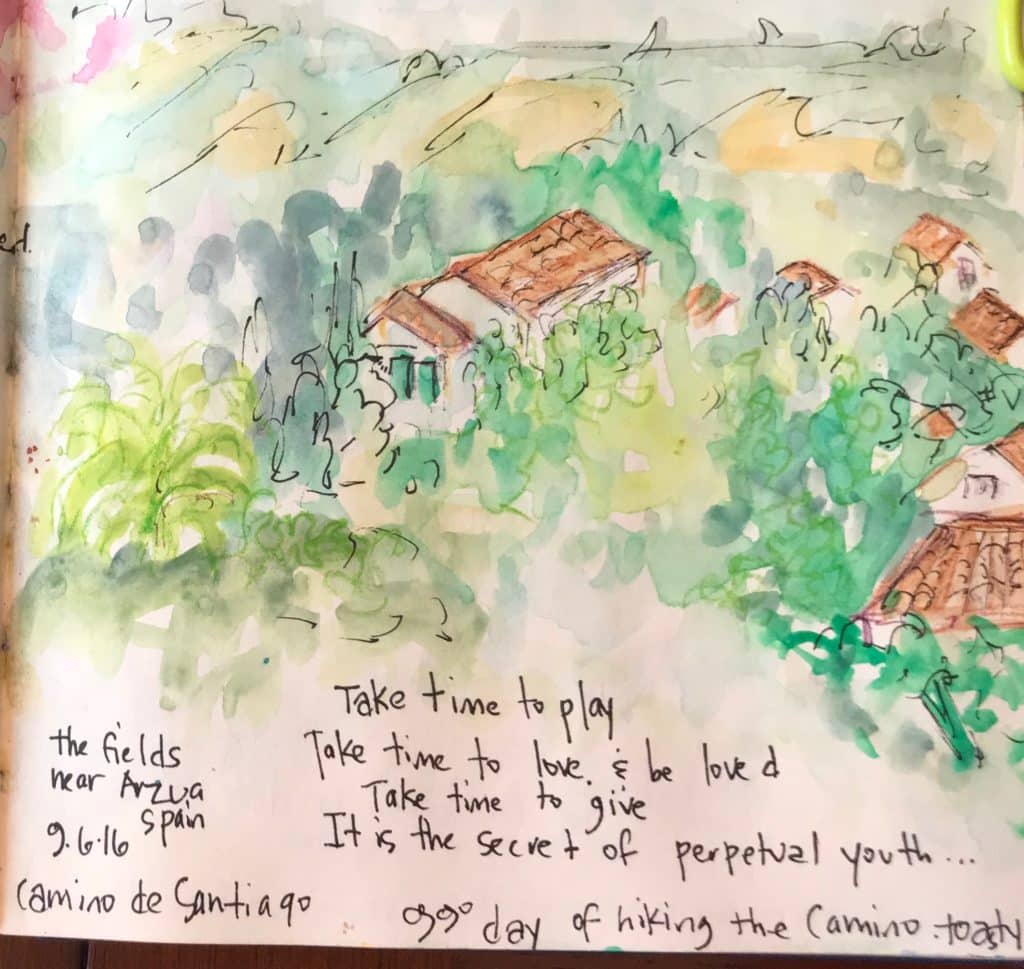 Take time to play
Take time to love. & be loved
Take time to give
It is the secret of perpetual youth...
the fields
near Arzua
Spain
9.6.16
Camino de Santiago
99° day of hiking the Camino .toasty